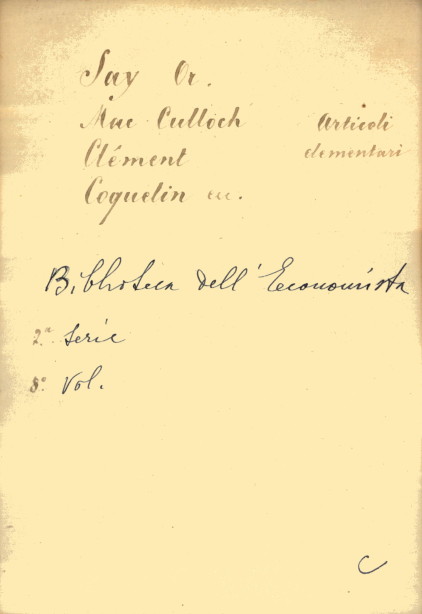 Say Or.
Mac Culloch Articoli
Clément elementari
Coquelin ecc.
Biblioteca dell' Economista
2.a Serie
8.o Vol.
C